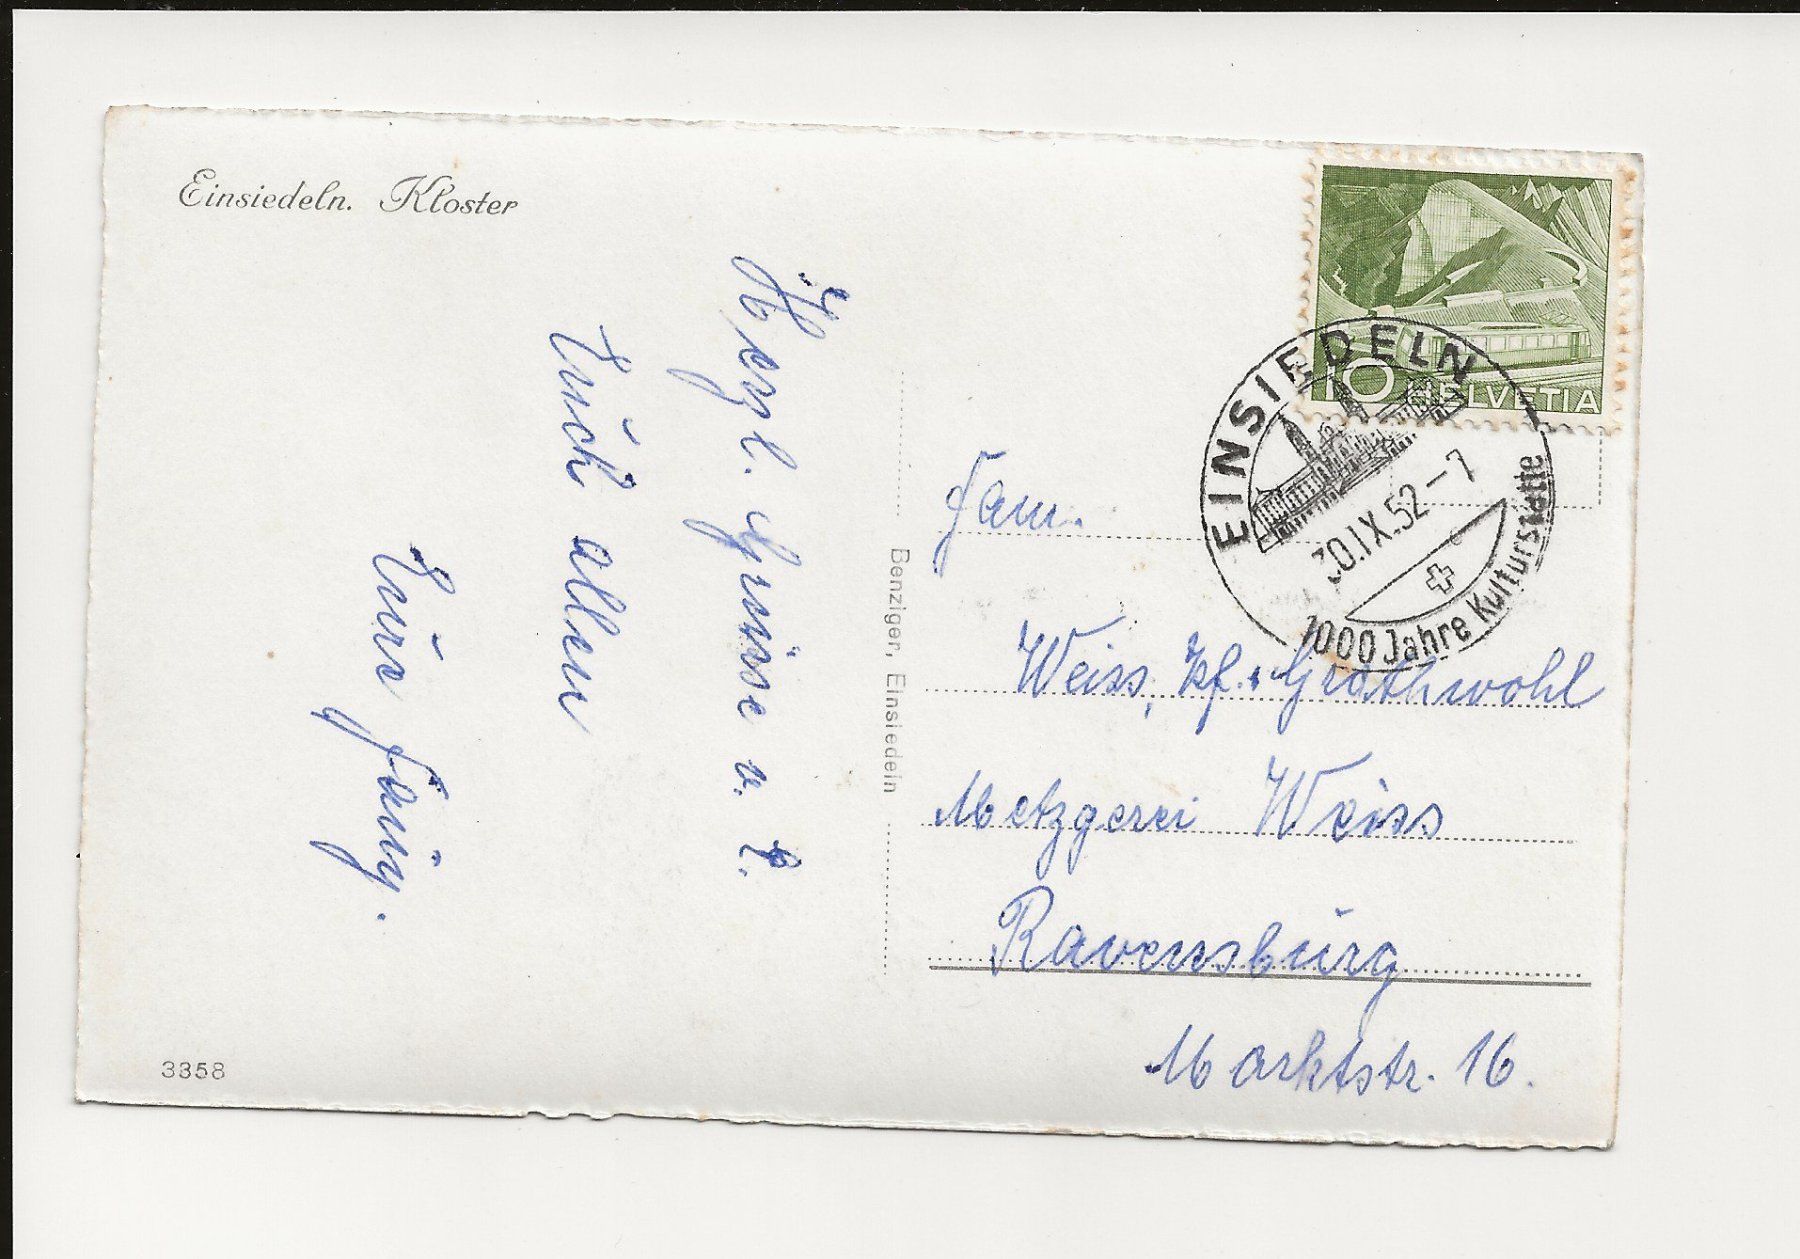 Einsiedeln. Kloster
Herzl. Grüsse v. E.
Euch allen
Eure Fanny.
3358
Benziger, Einsiedeln
10 HELVETIA
EINSIEDELN
30.IX.52-7
1000 Jahre Kulturstätte
Fam.
Weiss, Kf. Grathwohl
Metzgerei Weiss
Ravensburg
Marktstr. 16.